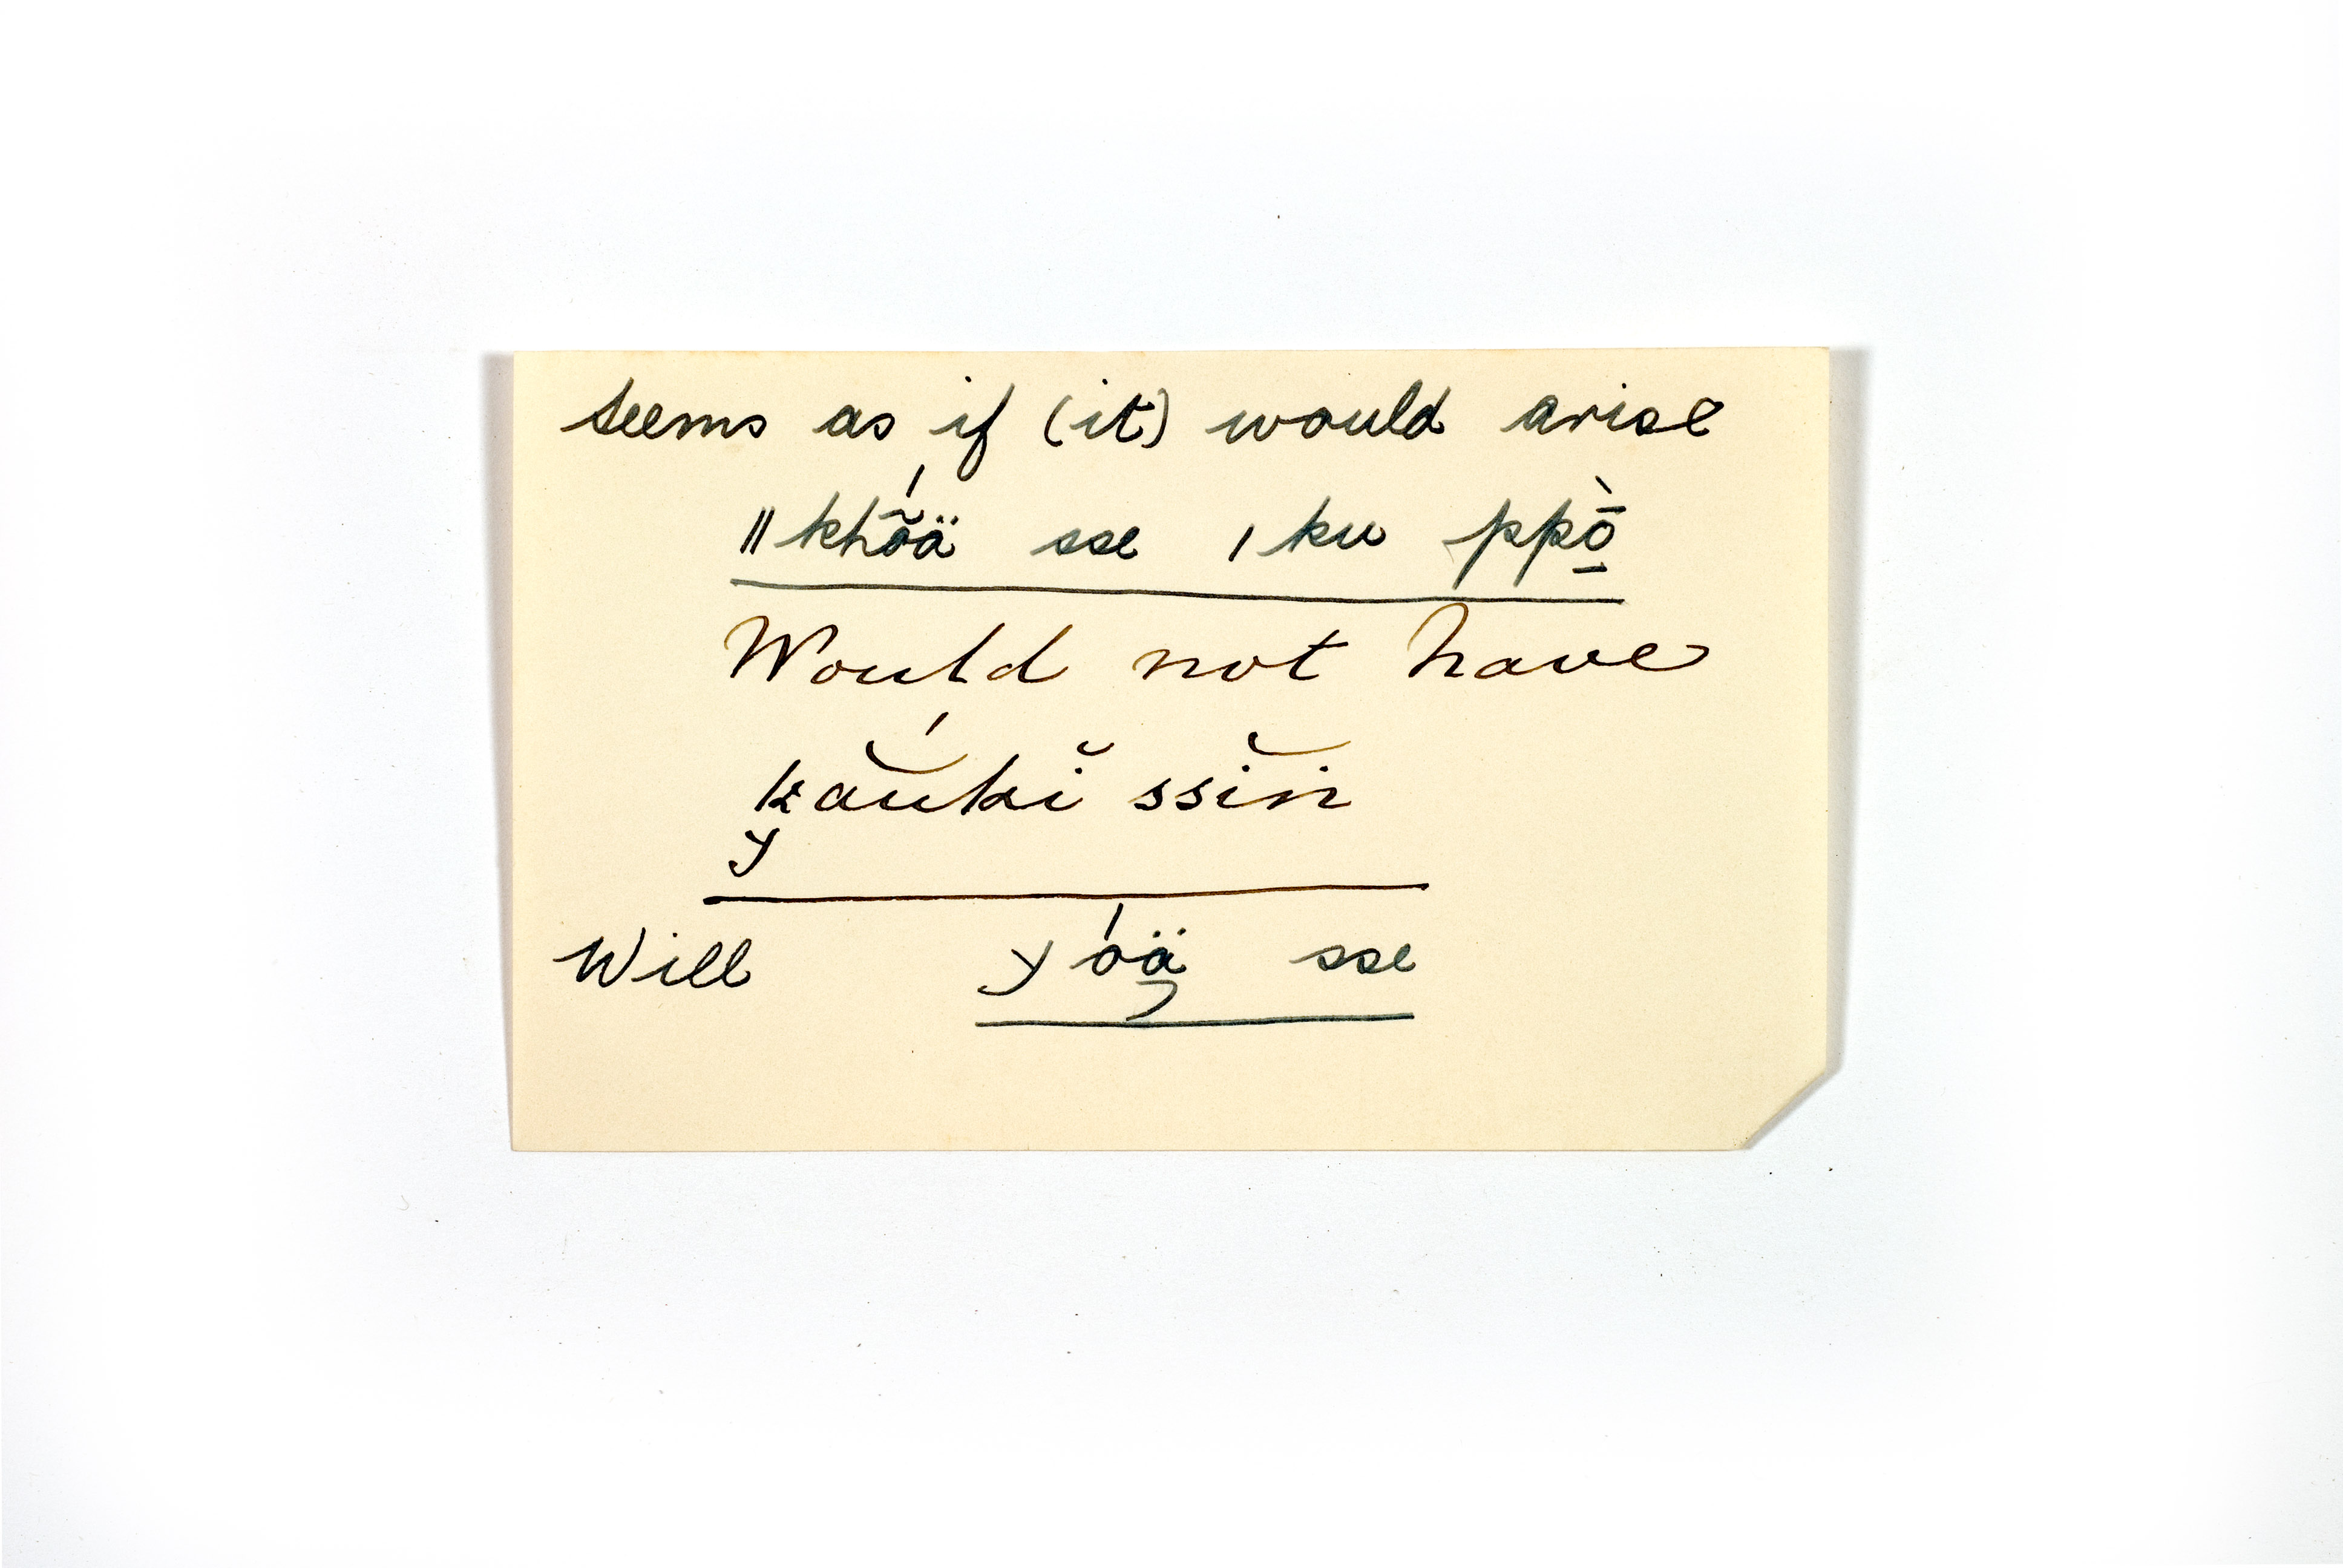 seems as if (it) would arise
ǁkhṍä sse ǀku ppṑ̱
Would not have
k̯ắŭkĭ ssĭn
y
Will y óä̡ sse